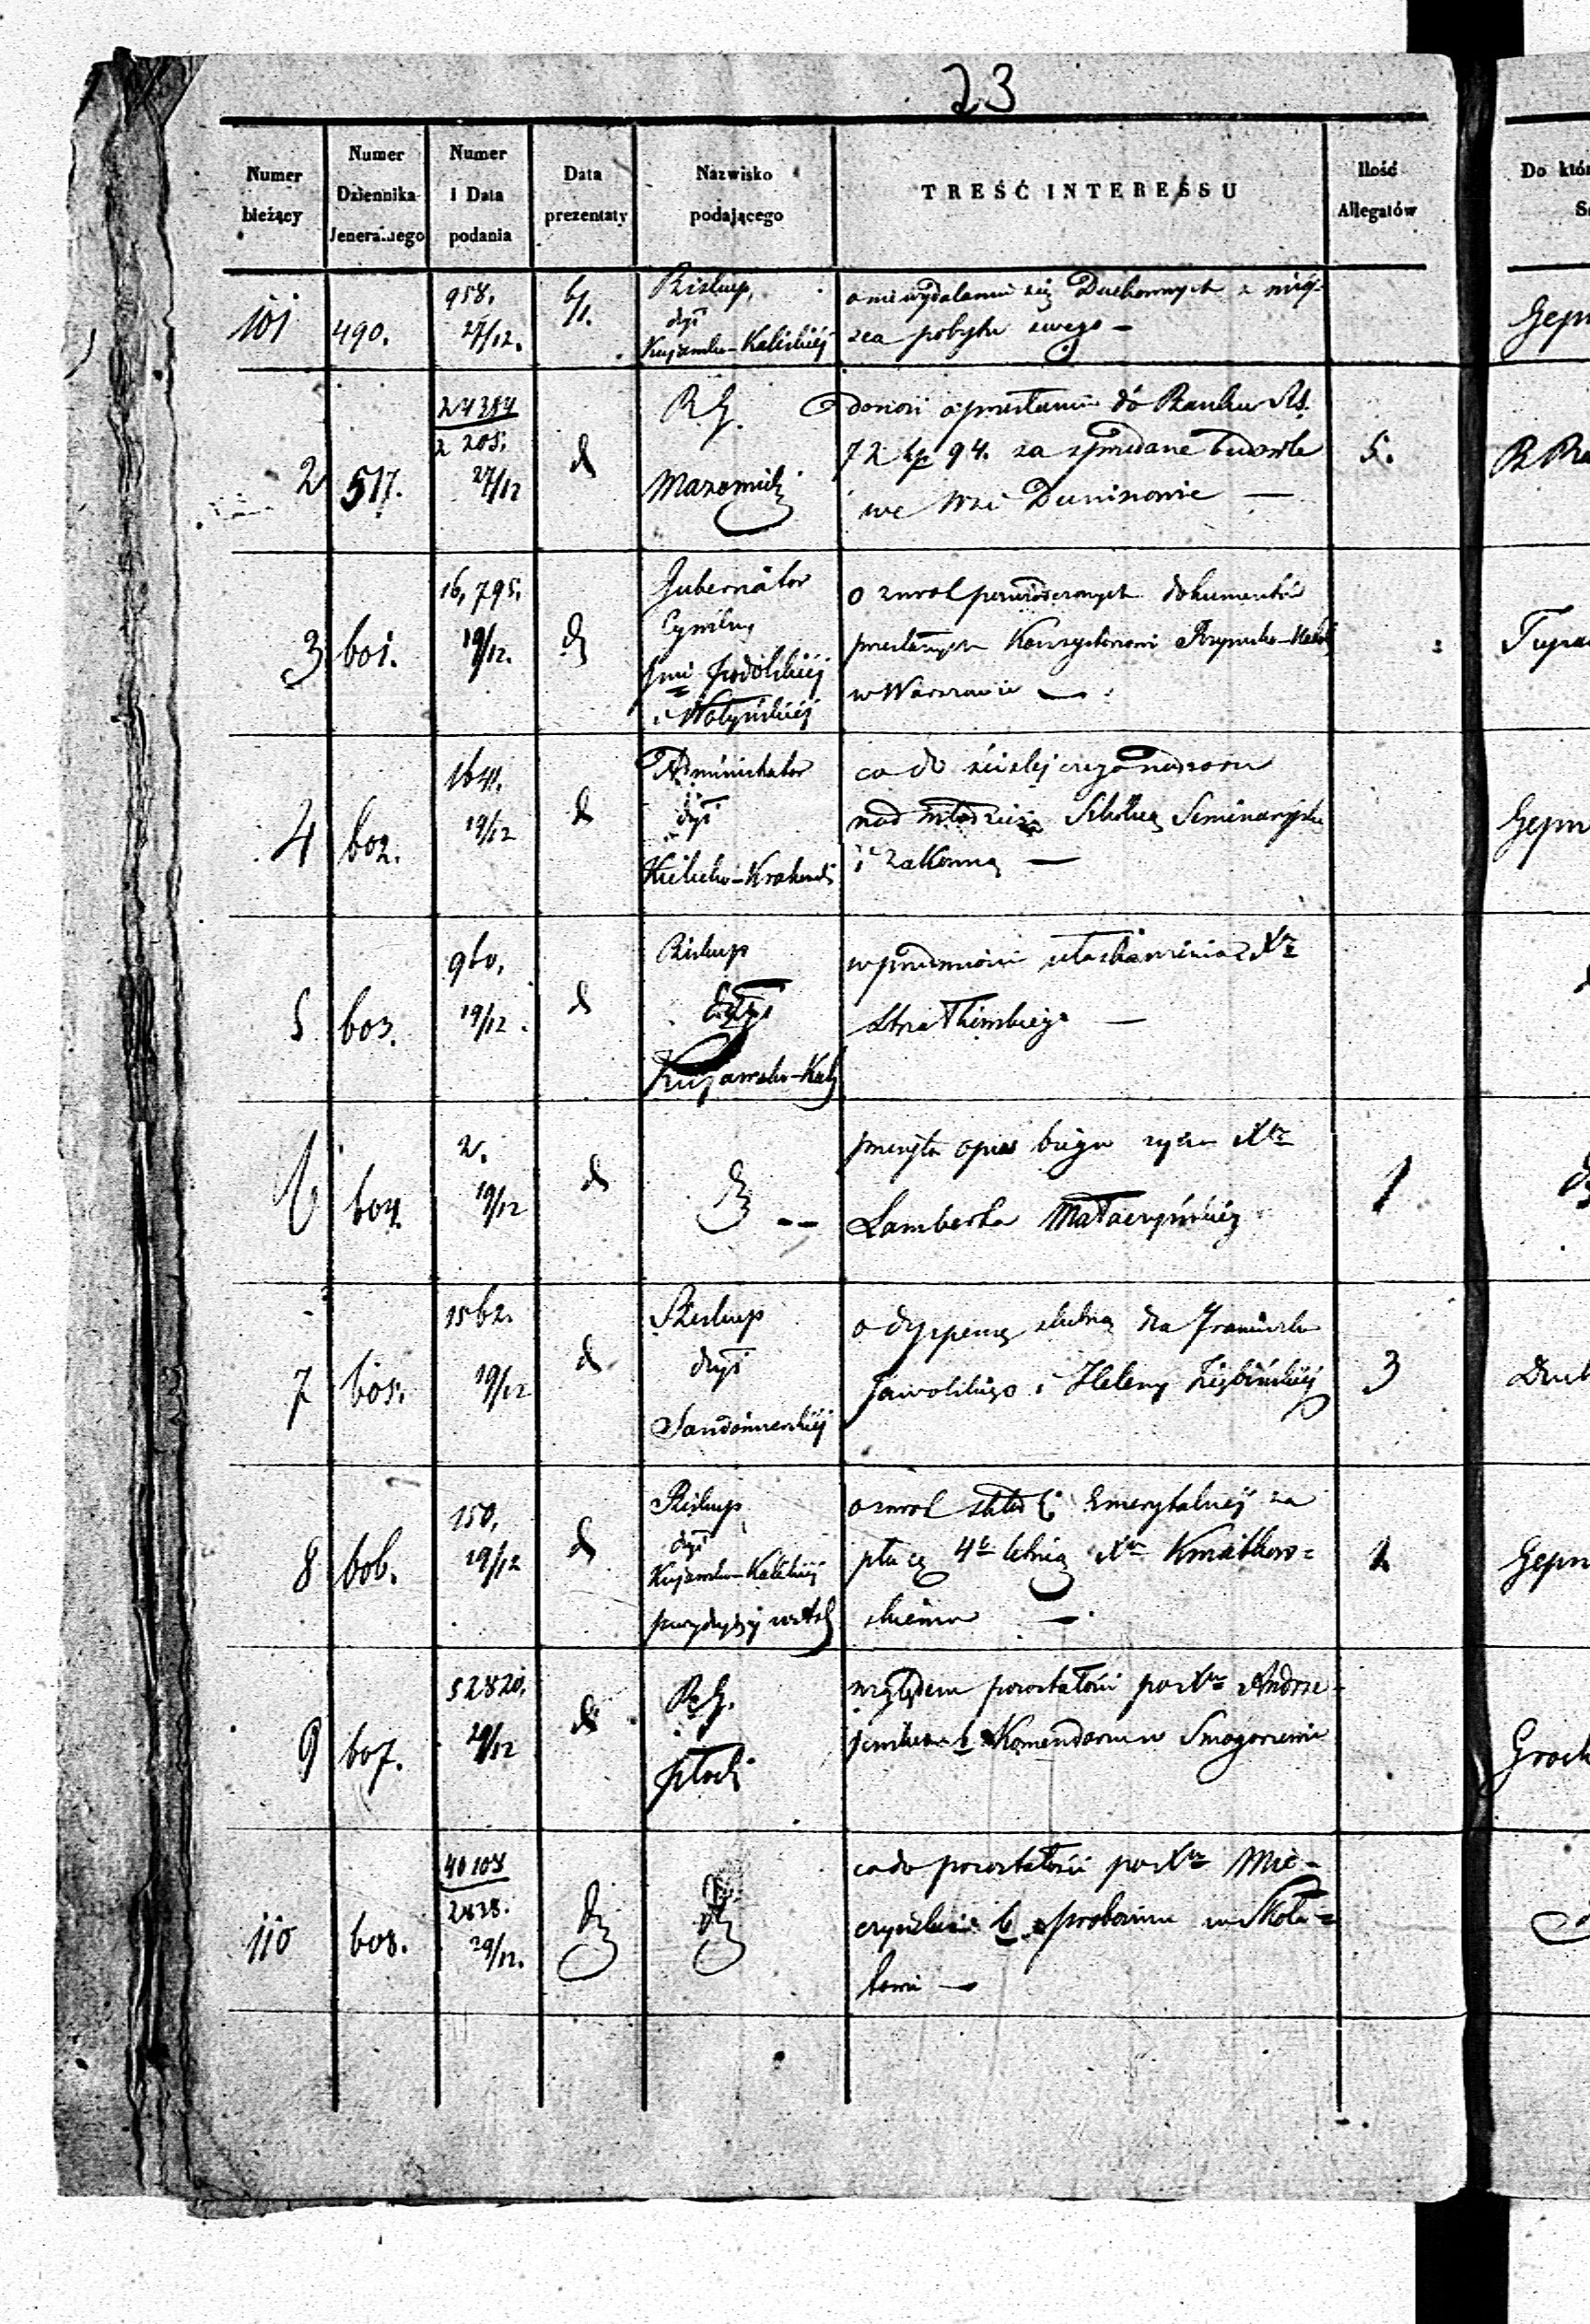 23
Numer bieżący
Numer Dziennika Jeneralnego
Numer i Data podania
Data prezentaty
Nazwisko podającego
TREŚĆ INTERESSU
Ilość Allegatów
Do któr
101
490.
958.
27/12.
6/1.
Biskup,
dyi
Kujawsko-Kaliskiéj
o niewydalaniu się Duchownych z miéj-
sca pobytu swego —
Gepn
2
517.
24384
2205.
27/12
d
R. G.
Mazowiecki
donosi o przesłaniu do Banku Rs.
72 kp 94. za sprzedane budowle
we Wsi Duninowie —
5.
3
601.
16,795.
19/12.
d
Gubernator
Cywilny
Gnii Podolskiéj
i Wołyńskiéj
o zwrot poświadczonych dokumentów
przesłanych Konsystorowi Rzymsko-
w Warszawie —
4
602.
1641.
19/12
d
Administrator
dyi
Kielecko-Krakows
co do ściślejszego nadzoru
nad młodzieżą Szkolną Seminaryjską
i zakonną —
Gepn
5
603.
960.
19/12.
d
Biskup
dyi
Kujawsko-Kal
w przedmiocie ułaskawienia Xa
6
604.
2.
19/12
d
d --
przesyła opis biegu życia Xa
Lamberta Małaczyńskieg
1
7
605.
1562.
19/12
d
Biskup
dyi
Sandomierskiéj
o dyspensę ślubną dla Franciszka
Jaworskiego i Heleny
3
Duch
8
606.
150.
29/12
d
Biskup
dyi
Kujawsko-Kaliskiéj
o zwrot składki Emerytalnéj za
płacę 4o letnią Xu Kwiatkow=
skiemu —
Gepn
9
607.
52820.
29/12
d
R. G.
Płocki
względem pozostałości po Xu Andrze-
jewskim b. Komendarzu w Smogorzewie
Groch
110
608.
40108
2828.
29/12.
d
d
co do pozostałości po Xu Mie-
czyńskim b. proboszczu w Skoła=
towie —